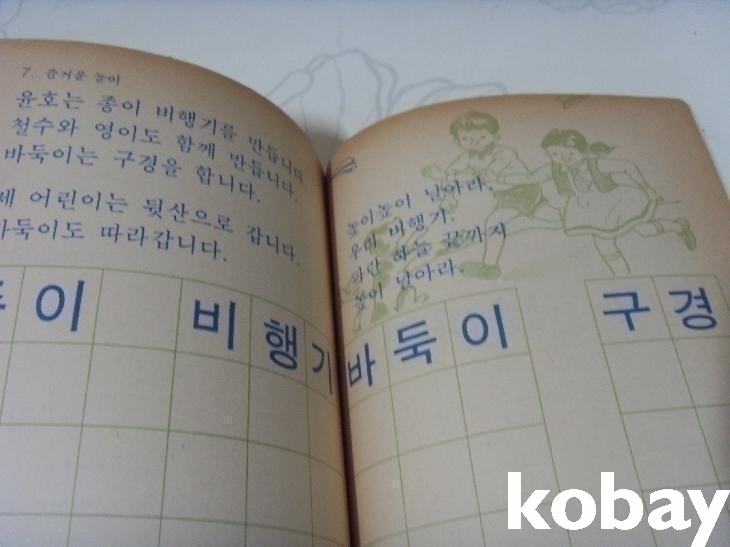 7. 즐거운 놀이
윤호는 종이 비행기를 만듭니다.
철수와 영이도 함께 만듭니다.
바둑이는 구경을 합니다.
어린이는 뒷산으로 갑니다.
바둑이도 따라갑니다.
종이 비행기
높이높이 날아라.
우리 비행기.
파란 하늘 끝까지
높이 날아라.
바둑이 구경
kobay